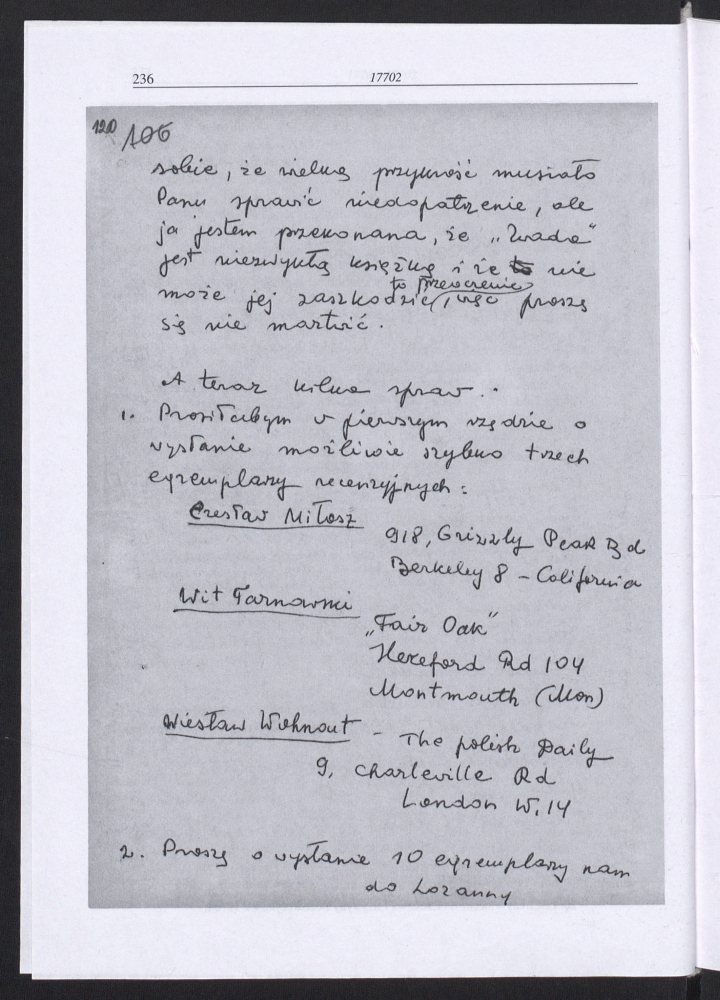 236
17702
120 106
sobie, że wielką przykrość musiało
Panu sprawić niedopatrzenie, ale
ja jestem przekonana, że „Zwada"
jest niezwykłą książką i że to nie
to przeoczenie
może jej zaszkodzić, więc proszę
się nie martwić.
A teraz kilka spraw.
1. Prosiłabym w pierwszym rzędzie o
wysłanie możliwie szybko trzech
egzemplarzy recenzyjnych:
Czesław Miłosz
918, Grizzly Peak Bd
Berkeley 8 – California
Wit Tarnawski
„Fair Oak"
Hereford Rd 104
Montmouth (Mon)
Wiesław Wohnout – The polish Daily
9, Charleville Rd
London W.14
2. Proszę o wysłanie 10 egzemplarzy nam
do Lozanny